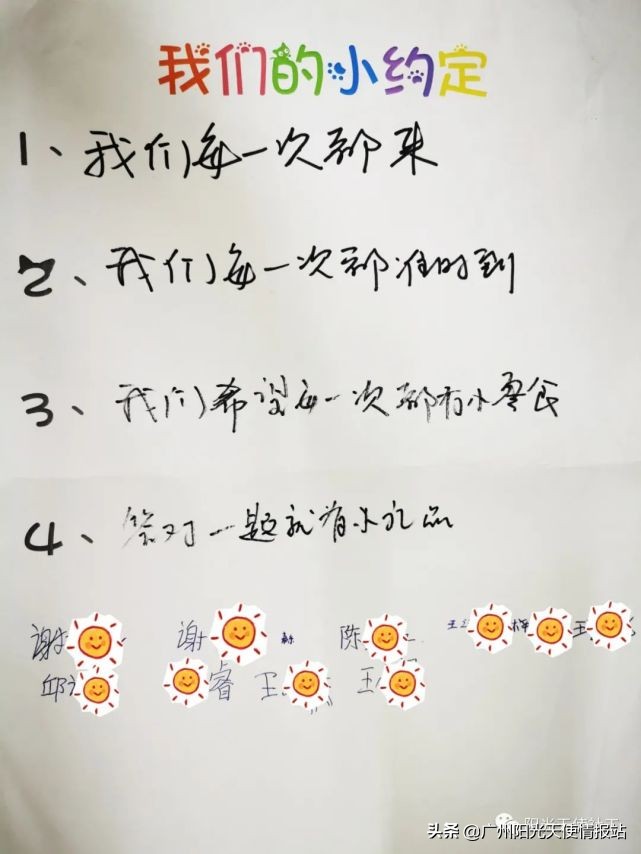 我们的小约定
1、我们每一次都来
2、我们每一次都准时到
3、我们希望每一次都有小零食
4、答对一题就有小礼品
谢 谢 陈 王 梓 王
邱 睿 王 王
阳光天使社工
头条 @广州阳光天使情报站